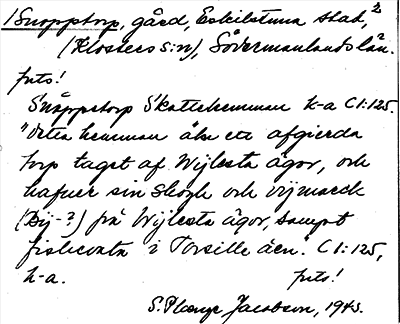 /Snopptorp, gård, Eskilstuna stad,
(Klosters s:n), Södermanlands län.
foto!
Snöppstorp Skattehemman k-a C 1:125.
"Detta hemman äbr ett afgierda
torp taget af Wijlesta ägor, och
hafuer sin Skogh och vijmarck
(Dij-?) på Wijlesta ägor, sampt
fiskevatn i Torsille åen". C 1:125,
k-a. foto!
S. Plange Jacobson, 1945.